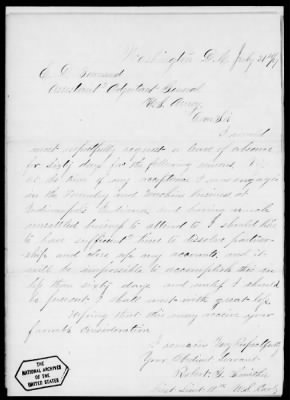 Washington D.C. July 31st /67
E. D. Townsend
Assistant Adjutant General
U.S. Army
Dear Sir
I would
most respectfully request a leave of absence
for sixty days for the following reasons, Viz,
at the time of my acceptance I was engaged
in the Foundry and Machine business at
Indianapolis Indiana, and having much
unsettled business to attend to I should like
to have sufficient time to dissolve partner-
ship and close up my accounts, and it
will be impossible to accomplish this in
less than sixty days and unless I should
be present I shall meet with great loss.
Hoping that this may receive your
favorable consideration
I remain Very Respectfully
Your Obedient Servant
Robert
First Lieut U.S.
THE
NATIONAL ARCHIVES
OF THE
UNITED STATES